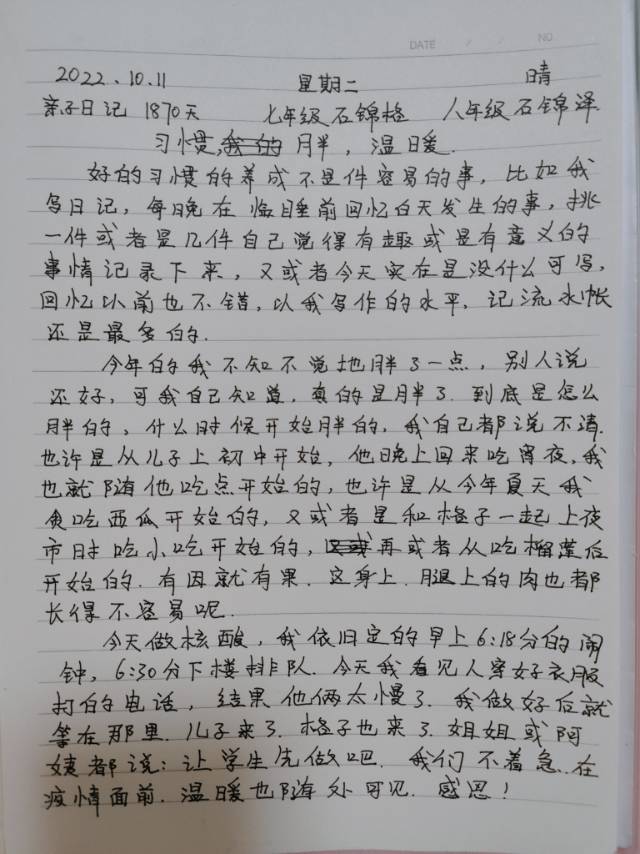 DATE / / NO
2022.10.11 星期二 晴
亲子日记 1870天 七年级石锦格 八年级石锦泽
习惯,我的 胖,温暖.
好的习惯的养成不是件容易的事,比如我
写日记,每晚在临睡前回忆白天发生的事,挑
一件或者是几件自己觉得有趣或是有意义的
事情记录下来,又或者今天实在是没什么可写,
回忆以前也不错,以我写作的水平,记流水帐
还是最多的.
今年的我不知不觉地胖了一点,别人说
还好,可我自己知道,真的是胖了.到底是怎么
胖的,什么时候开始胖的,我自己都说不清.
也许是从儿子上初中开始,他晚上回来吃宵夜,我
也就随他吃点开始的,也许是从今年夏天我
贪吃西瓜开始的,又或者是和格子一起上夜
市时吃小吃开始的,又或再或者从吃榴莲后
开始的.有因就有果.这身上.腿上的肉也都
长得不容易呢.
今天做核酸,我依旧定的早上6:18分的闹
钟,6:30分下楼排队.今天我看见人穿好衣服
打的电话,结果他俩太慢了.我做好后就
等在那里.儿子来了.格子也来了.姐姐或阿
姨都说:让学生先做吧.我们不着急.在
疫情面前.温暖也随处可见.感恩!